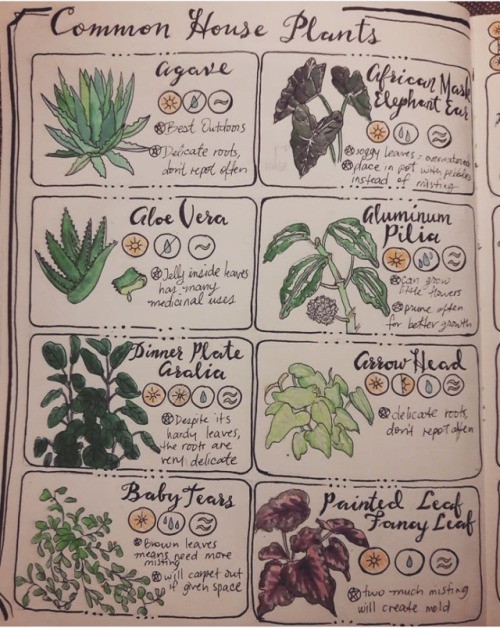 Common House Plants
Agave
Best Outdoors
Delicate roots,
don't repot often
African Mask
Elephant Ear
soggy leaves = overwatered
place in pot with pebbles
instead of misting
Aloe Vera
Jelly inside leaves
has many
medicinal uses
Aluminum
Pilia
can grow
little flowers
prune often
for better growth
Dinner Plate
Aralia
Despite its
hardy leaves,
the roots are
very delicate
Arrow Head
delicate roots,
don't repot often
Baby Tears
Brown leaves
means need more
misting
will carpet out
if given space
Painted Leaf
Fancy Leaf
two much misting
will create mold